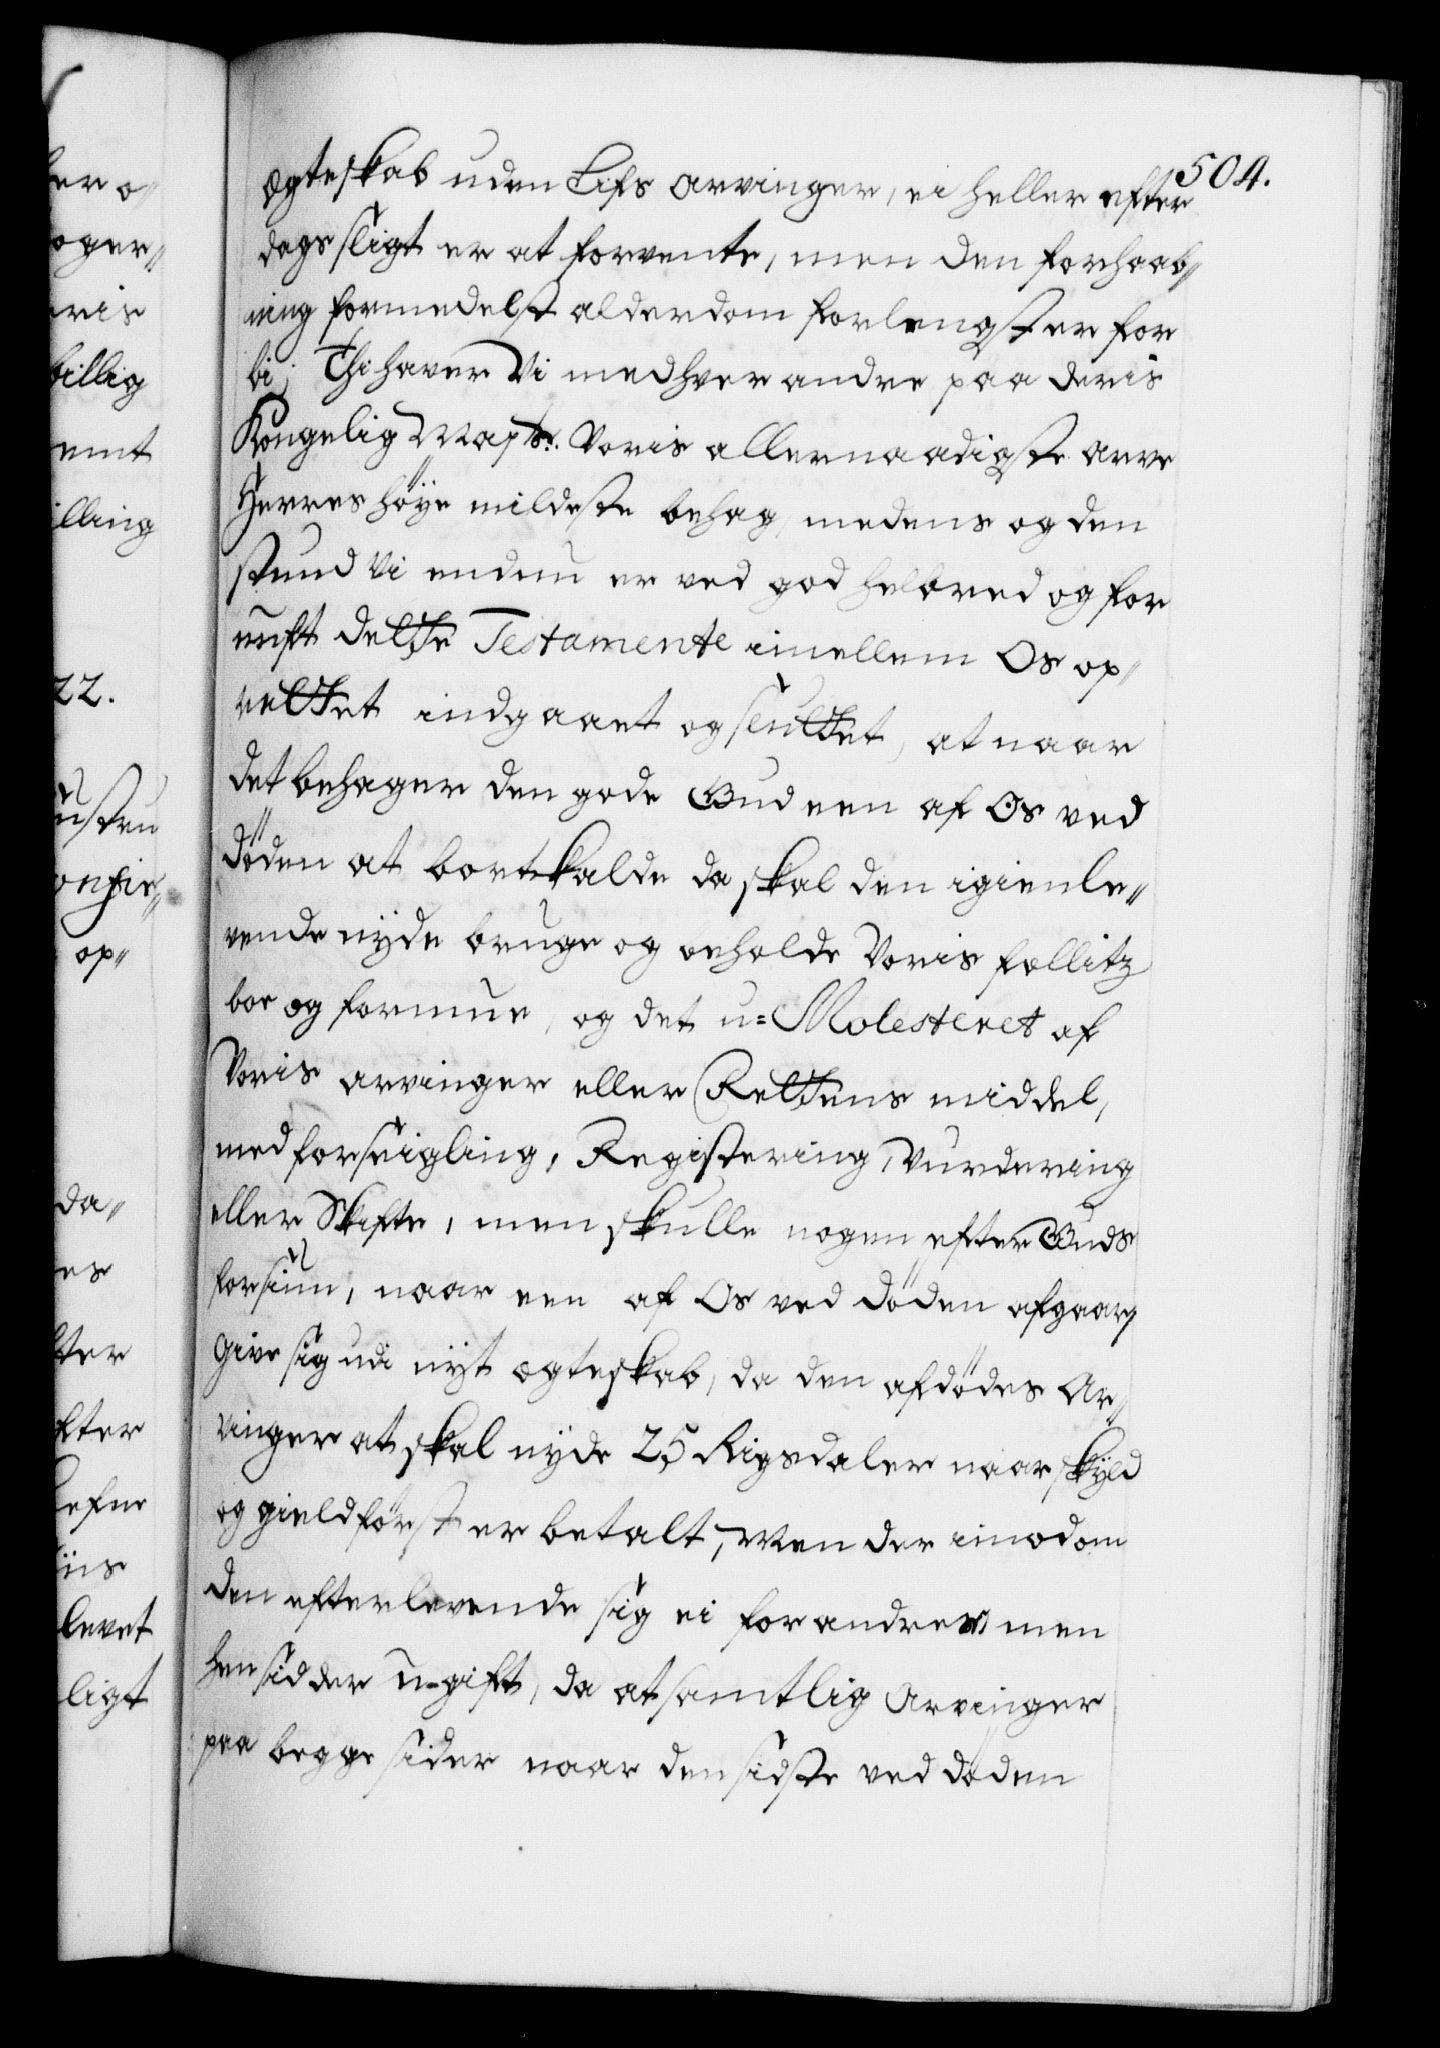 504.
ægteskab uden Lifs arvinger, ei heller efter
dags sligt er at forvente, men den forhaab„
ning formedelst alderdom forlengst er for
bi; Thi haver Vi med hver andre paa deris
Kongelig Maÿts: Voris allernaadigste arve
Herres høÿe mildeste behag, medens og den
stund Vi endnu er ved god helbred og for
nuft dette Testamente imellem Os op„
rettet indgaaet og sluttet, at naar
det behager den gode Gud een af Os ved
døden at bortkalde da skal den igienle„
vende nyde bruge og beholde Voris fællitz
boe og formue, og det u=Molesteret af
Voris arvinger eller Rettens middel,
med forseigling, Registering, Vurdering
eller Skifte, men skulle nogen efter Guds
forsiun, naar een af Os ved døden afgaar,
give sig udi nyt ægteskab, da den afdødes Ar„
vinger at skal nyde 25 Rigsdaler naar skyld
og gield først er betalt, Men der imod om
den efterlevende sig ei forandrer, men
hensidder u-gift, da at samtlig Arvinger
paa begge sider naar den sidste ved døden
her o„
oger„
eris
billig
emt
illing
22.
onfir„
op„
da„
es
ter
fter
efne
iis
levet
ligt